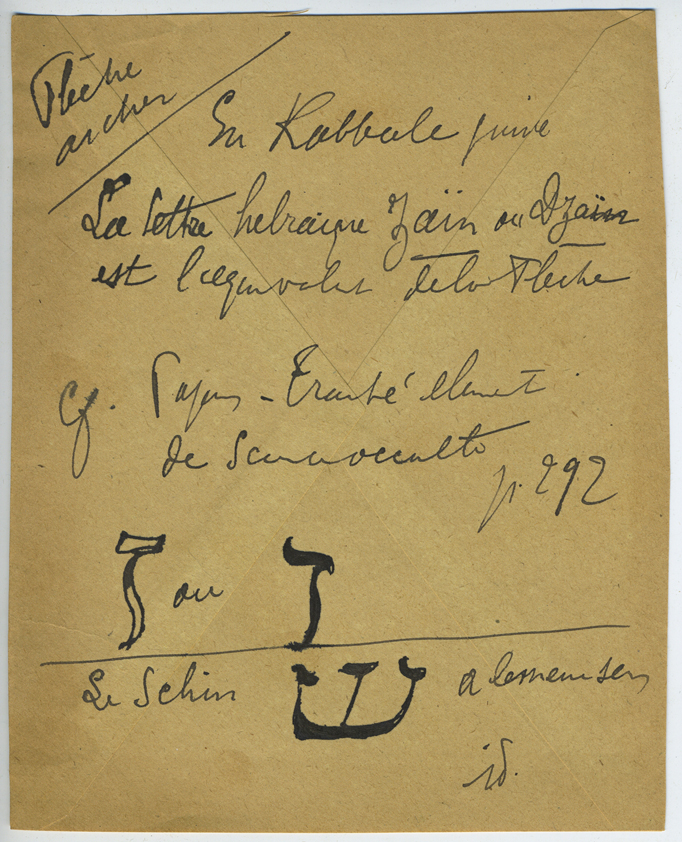 Flèche
archer
En Kabbale juive
La lettre hebraique Zaïn ou Dzaïn
est l'equivalent de la Flèche
Cf. Papus - Traité element
de Science occulte
p. 292
ז ou ז
Le Schin ש a le meme sens
id.